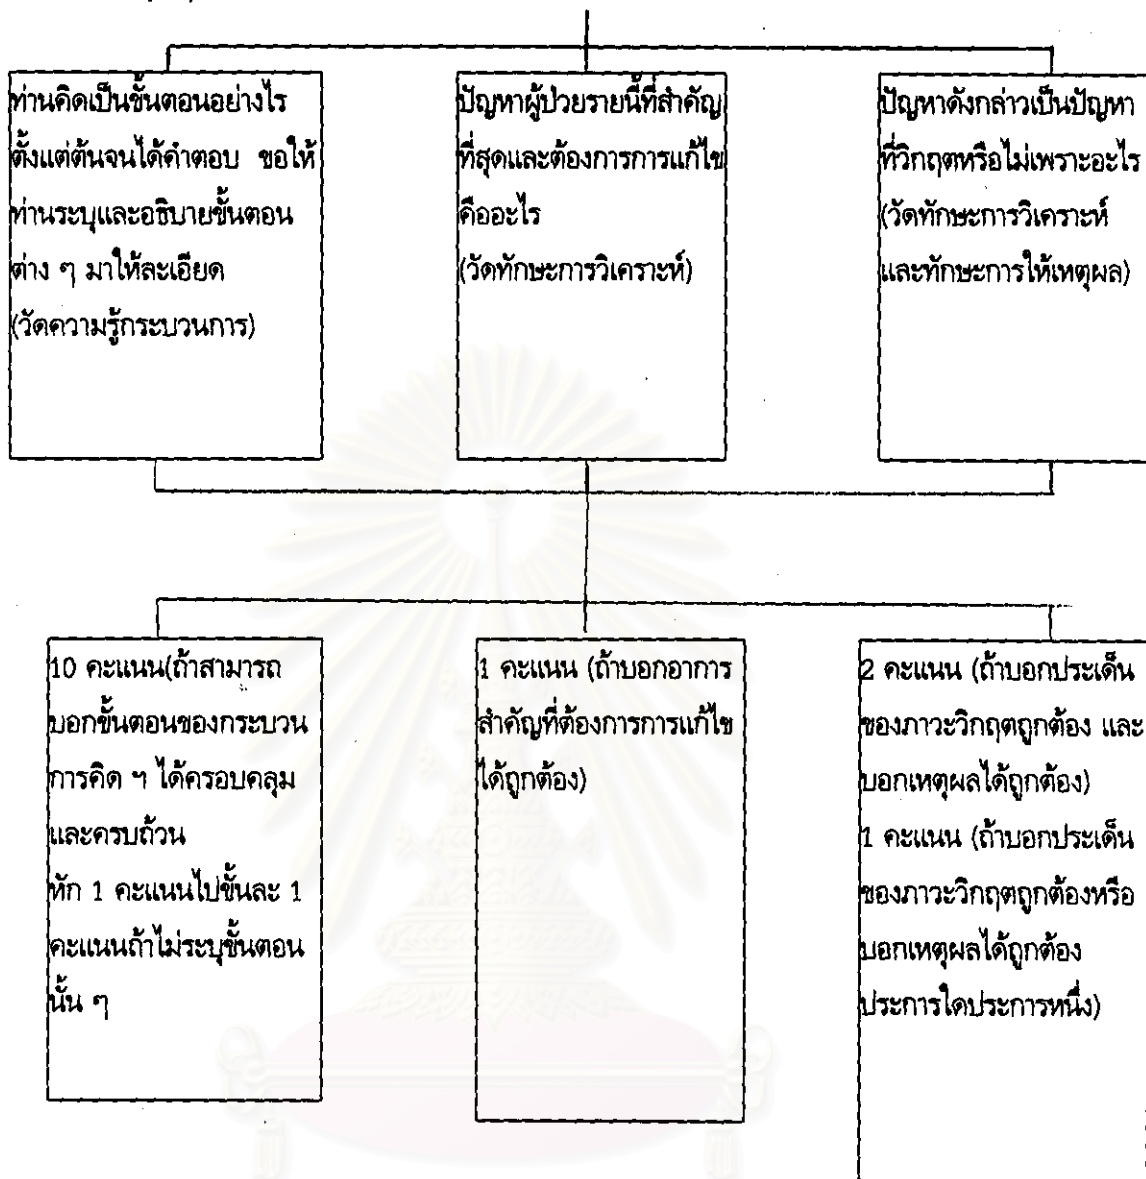 ท่านคิดเป็นขั้นตอนอย่างไร
ตั้งแต่ต้นจนได้คำตอบ ขอให้
ท่านระบุและอธิบายขั้นตอน
ต่าง ๆ มาให้ละเอียด
(วัดความรู้กระบวนการ)
ปัญหาผู้ป่วยรายนี้ที่สำคัญ
ที่สุดและต้องการการแก้ไข
คืออะไร
(วัดทักษะการวิเคราะห์)
ปัญหาดังกล่าวเป็นปัญหา
ที่วิกฤตหรือไม่เพราะอะไร
(วัดทักษะการวิเคราะห์
และทักษะการให้เหตุผล)
10 คะแนน(ถ้าสามารถ
บอกขั้นตอนของกระบวน
การคิด ฯ ได้ครอบคลุม
และครบถ้วน
หัก 1 คะแนนไปขั้นละ 1
คะแนนถ้าไม่ระบุขั้นตอน
นั้น ๆ
1 คะแนน (ถ้าบอกอาการ
สำคัญที่ต้องการการแก้ไข
ได้ถูกต้อง)
2 คะแนน (ถ้าบอกประเด็น
ของภาวะวิกฤตถูกต้อง และ
บอกเหตุผลได้ถูกต้อง)
1 คะแนน (ถ้าบอกประเด็น
ของภาวะวิกฤตถูกต้องหรือ
บอกเหตุผลได้ถูกต้อง
ประการใดประการหนึ่ง)